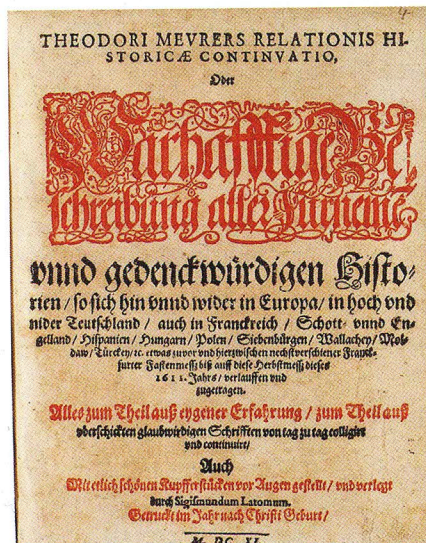 4
THEODORI MEVRERS RELATIONIS HI-
STORICÆ CONTINVATIO,
Oder
Warhafftige Be-
schreibung aller Fürneme
vnnd gedenckwürdigen Histo-
rien / so sich hin vnnd wider in Europa / in hoch vnd
nider Teutschland / auch in Franckreich / Schott- vnnd En-
gelland / Hispanien / Hungarn / Polen / Siebenbürgen / Wallachey / Mol-
daw / Türckey / ꝛc. etwas zuvor vnd hierzwischen nechstverschiener Franck-
furter Fastenmeß biß auff diese Herbstmeß dieses
1611. Jahrs / verlauffen vnd
zugetragen.
Alles zum Theil auß eygener Erfahrung / zum Theil auß
vberschickten glaubwirdigen Schrifften von tag zu tag colligirt
vnd continuirt /
Auch
Mit etlich schönen Kupfferstücken vor Augen gestellt / vnd verlegt
durch Sigismundum Latomum.
Getruckt im Jahr nach Christi Geburt /
M. DC. XI.